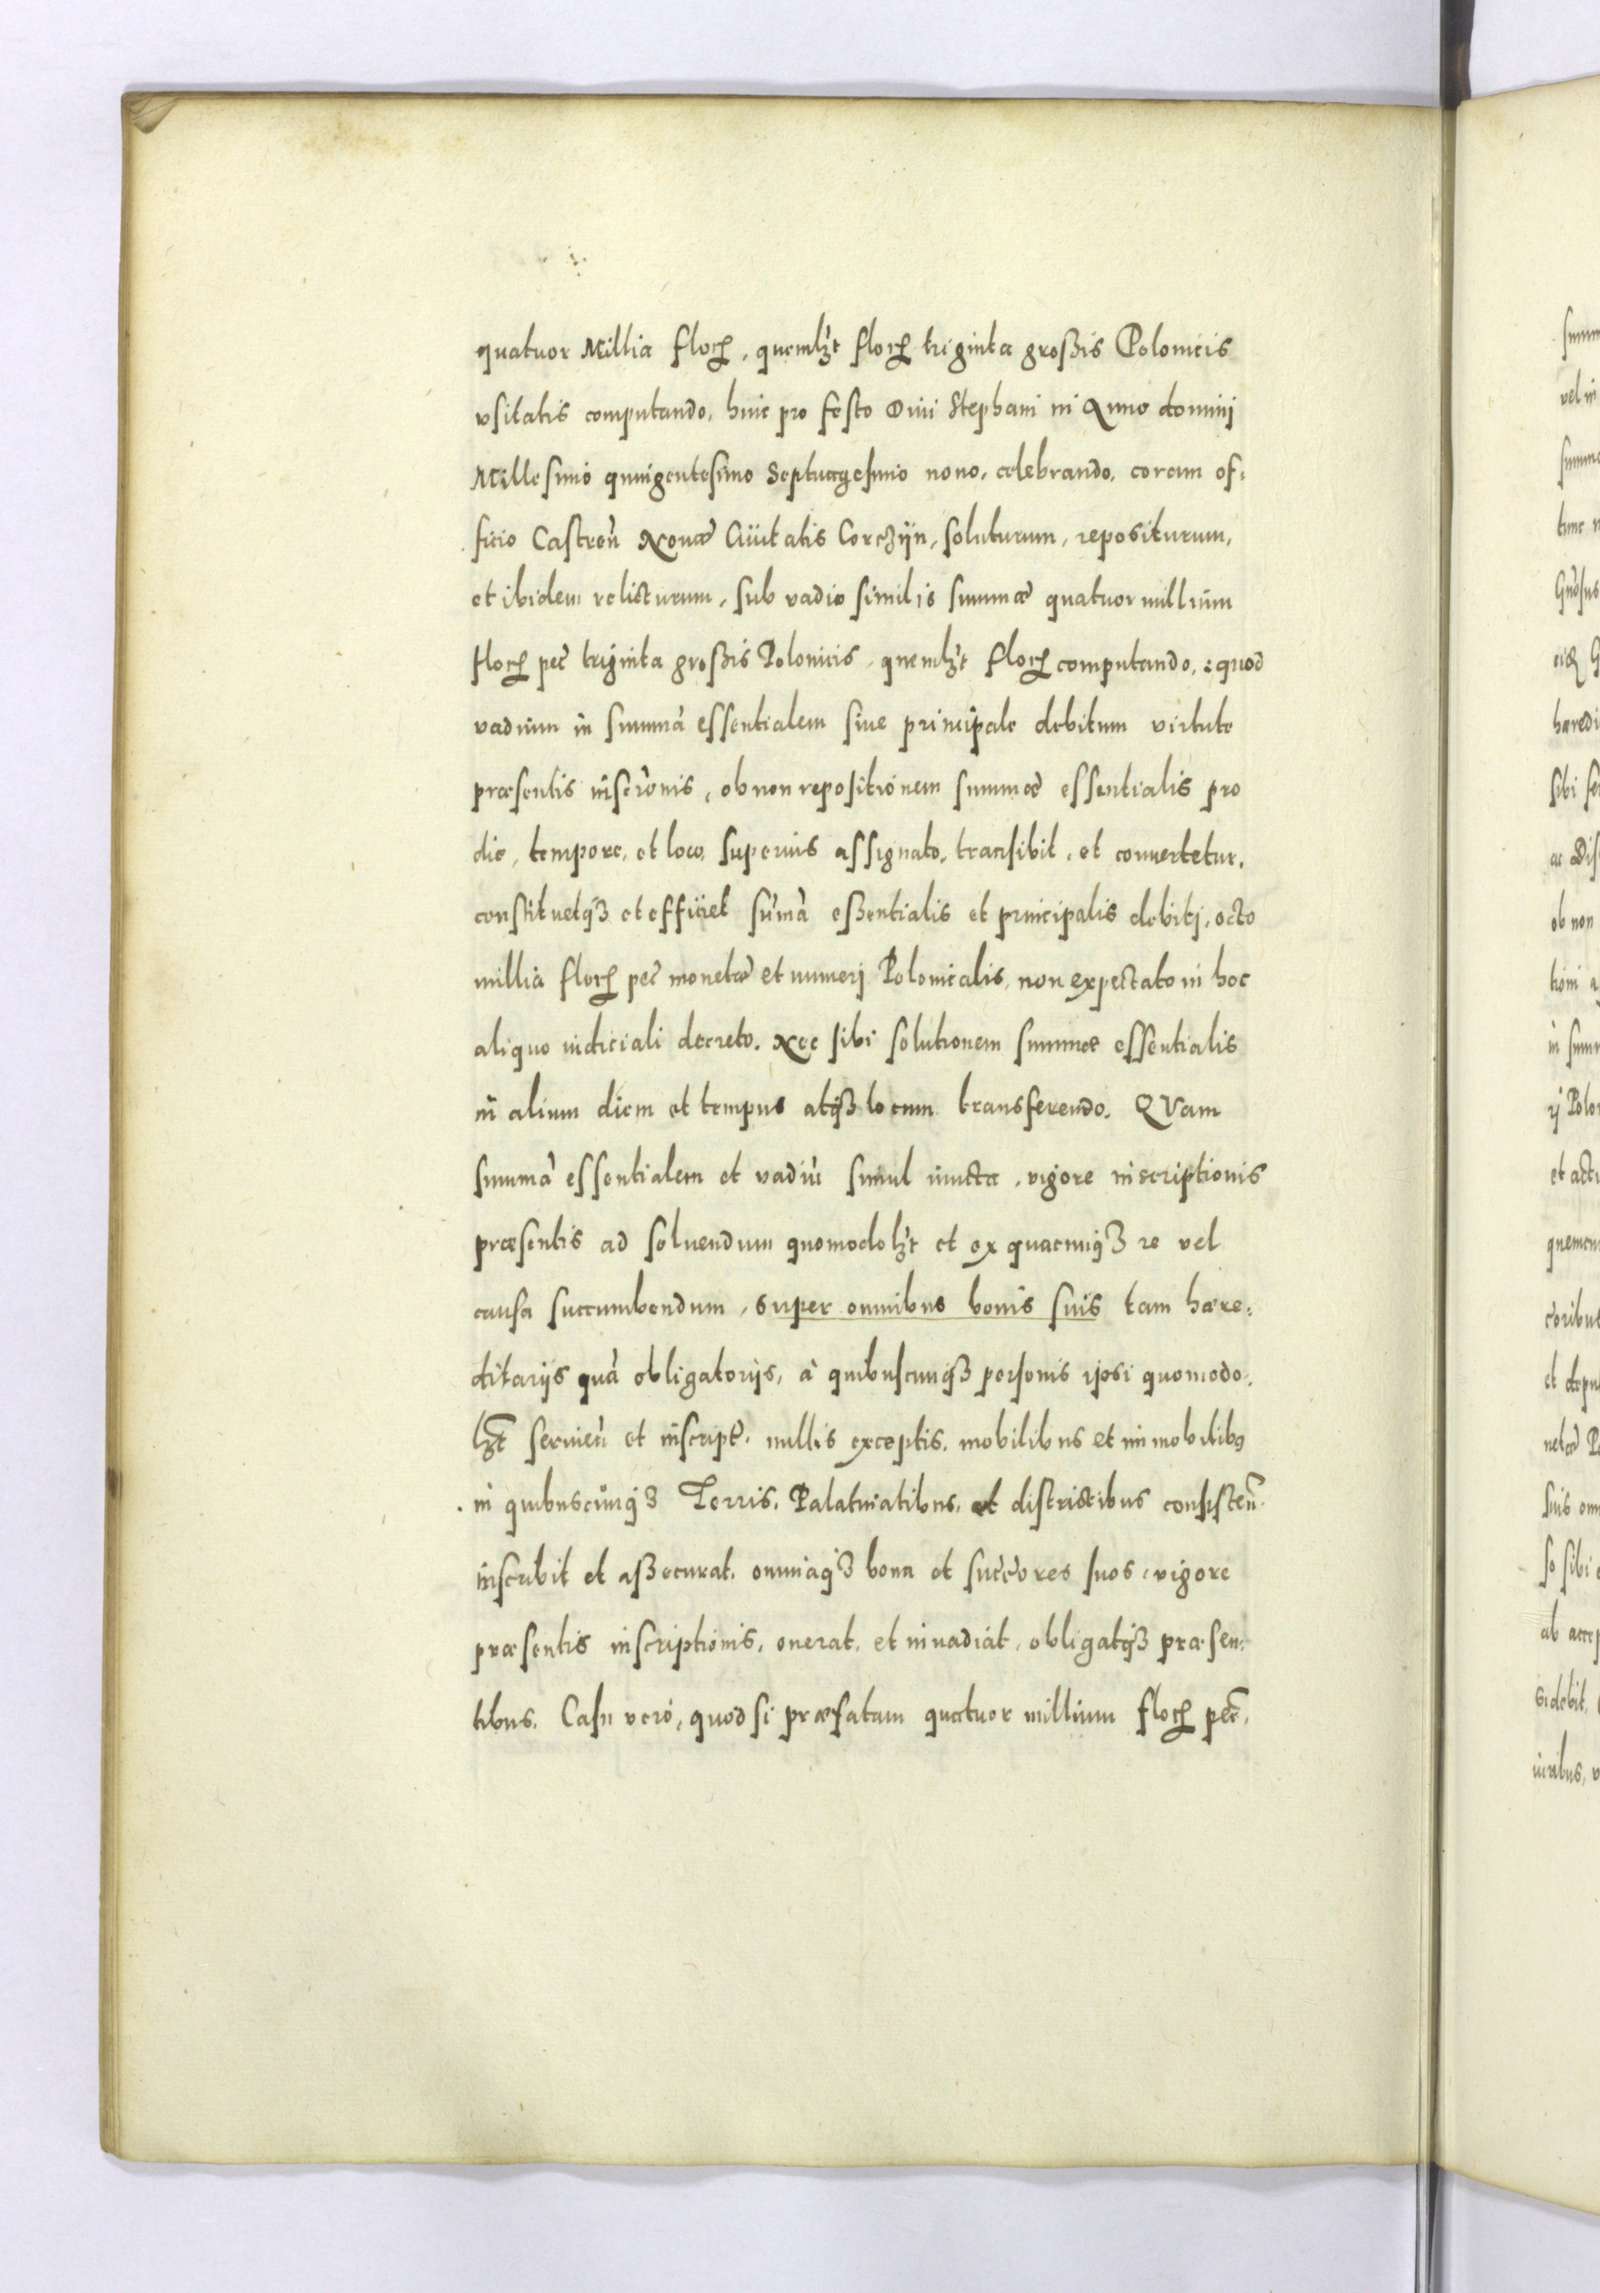 quatuor Millia floꝝ, quemlꝫt floꝝ triginta großis Polonicis
vsitatis computando, hinc pro festo Diui Stephani in Anno dominj
Millesimo quingentesimo Septuagesimo nono, celebrando, coram of:
ficio Castreñ Nouæ Ciuitatis Corczÿn, soluturum, repositurum,
et ibidem relicturum, sub vadio similis summæ quatuor millium
floꝝ pec̃ triginta großis Polonicis, quemlꝫt floꝝ computando, quod
vadium in summã essentialem siue principale debitum virtute
præsentis inscr̃onis, ob non repositionem summæ essentialis pro
die, tempore, et loco superius assignato, transibit, et conuertetur,
constituetqꝫ et efficiet sum̃ã eßentialis et principalis debitj, octo
millia floꝝ pec̃ monetæ et numerj Polonicalis, non expectato in hoc
aliquo iudiciali decreto. Nec sibi solutionem summæ essentialis
in alium diem et tempus atqꝫ locum transferendo. QVam
summã essentialem et vadiũ simul iuncta, vigore inscriptionis
præsentis ad soluendum quomodolꝫt et ex quacunqꝫ re vel
causa succumbendum, super omnibus bonis suis tam hære:
ditarijs quã obligatorijs, à quibuscunqꝫ personis ipsi quomodo:
lꝫt seruieñ et inscript̃, nullis exceptis, mobilibus et immobilibꝰ
in quibuscũnqꝫ Terris, Palatinatibus, et districtibus consisteñ
inscribit et aßecurat, omniaqꝫ bona et succ̃ores suos, vigore
præsentis inscriptionis, onerat, et inuadiat, obligatqꝫ præsen:
tibus. Casu verò, quod si præfatam quatuor millium floꝝ pec̃,